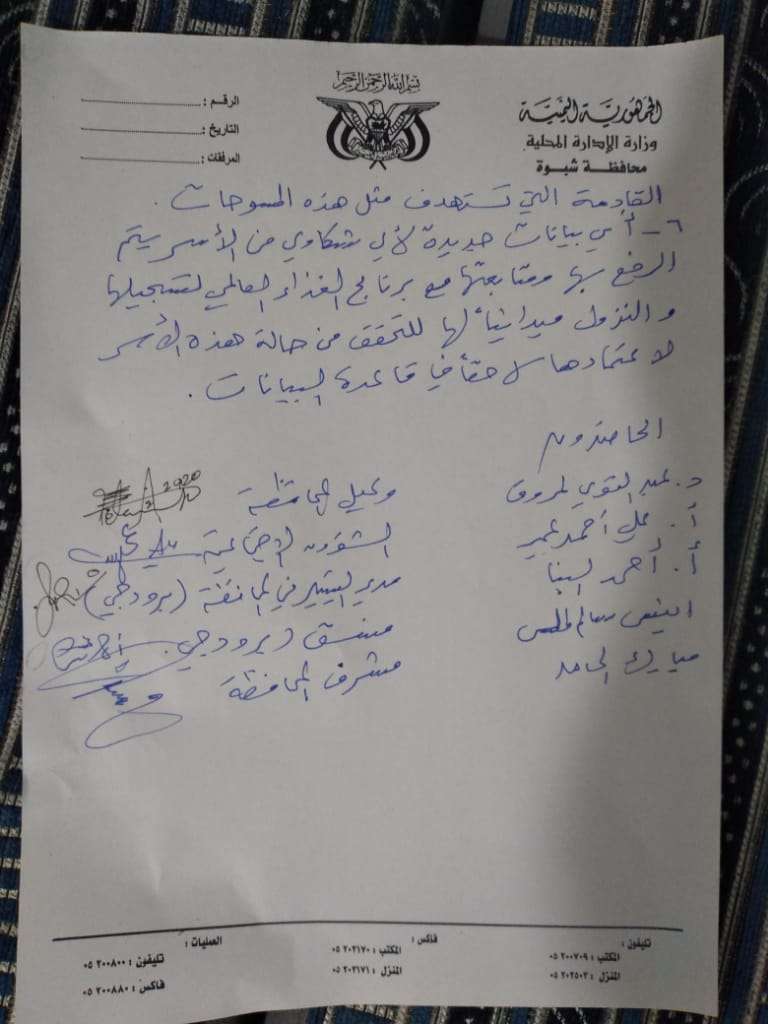 بسم الله الرحمن الرحيم
الجمهورية اليمنية
وزارة الإدارة المحلية
محافظة شبوة
الرقم :
التاريخ :
المرفقات :
القادمة التي تستهدف مثل هذه المسوحات .
٦ - أي بيانات جديدة لأي شكاوي من الأسر يتم
الرفع بها ومتابعتها مع برنامج الغذاء العالمي لتسجيلها
والنزول ميدانياً لها للتحقق من حالة هذه الأسر
لاعتمادها لاحقاً في قاعدة البيانات .
الحاضرون
د. عبد القوي لمروق وكيل المحافظة
أ. علي أحمد عمير الشؤون الاجتماعية
أ. أحمد البنا مدير التيتير في المحافظة (برودجي)
سالم منسق (برودجي)
مبارك الحامد مشرف المحافظة
2020
تليفون :
المكتب : ٢٠٠٧٠٩ ٠٥
المنزل : ٢٠٢٥٠٢ ٠٥
فاكس :
المكتب : ٢٠٢١٧٠ ٠٥
المنزل : ٢٠٢١٧١ ٠٥
العمليات :
تليفون : ٢٠٠٨٠٠ ٠٥
فاكس : ٢٠٠٨٨٠ ٠٥